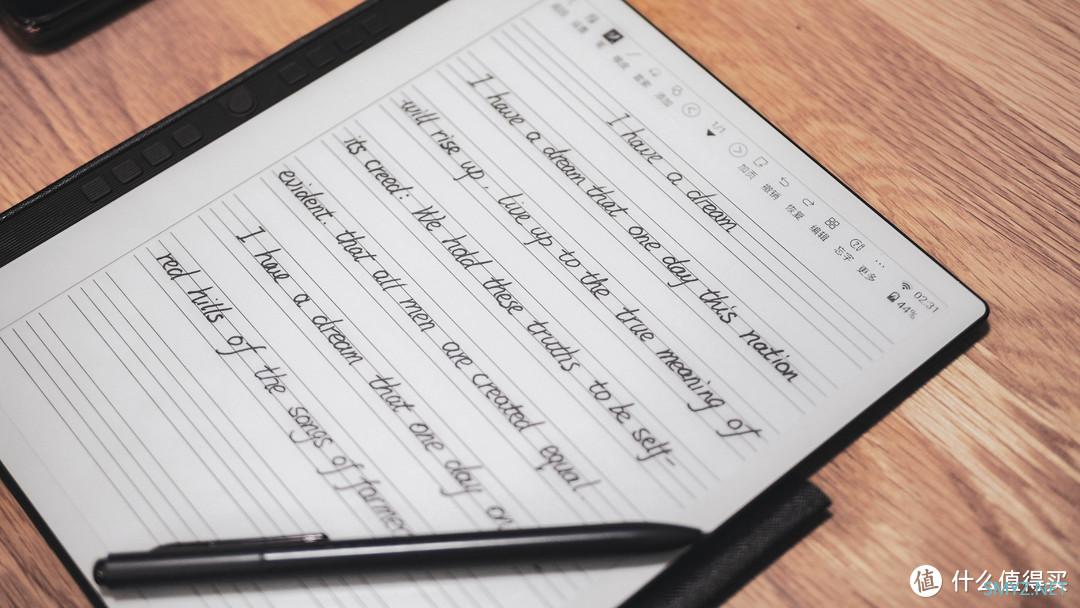 加页 撤销 恢复 编辑 忘字 更多
02:31
44%
1/1
I have a dream
I have a dream that one day this nation
will rise up, live up to the true meaning of
its creed: We hold these truths to be self-
evident. that all men are created equal
I have a dream that one day on
red hills of the songs of
值 什么值得买